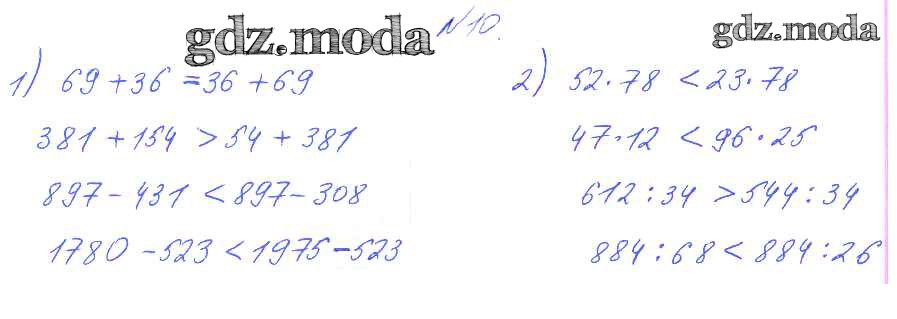 gdz.moda №10. gdz.moda
1) 69 + 36 = 36 + 69
381 + 154 > 54 + 381
897 - 431 < 897 - 308
1780 - 523 < 1975 - 523
2) 52 · 78 < 23 · 78
47 · 12 < 96 · 25
612 : 34 > 544 : 34
884 : 68 < 884 : 26